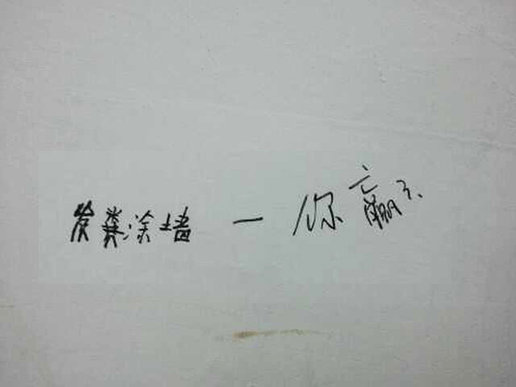 发粪涂墙 — 你赢了